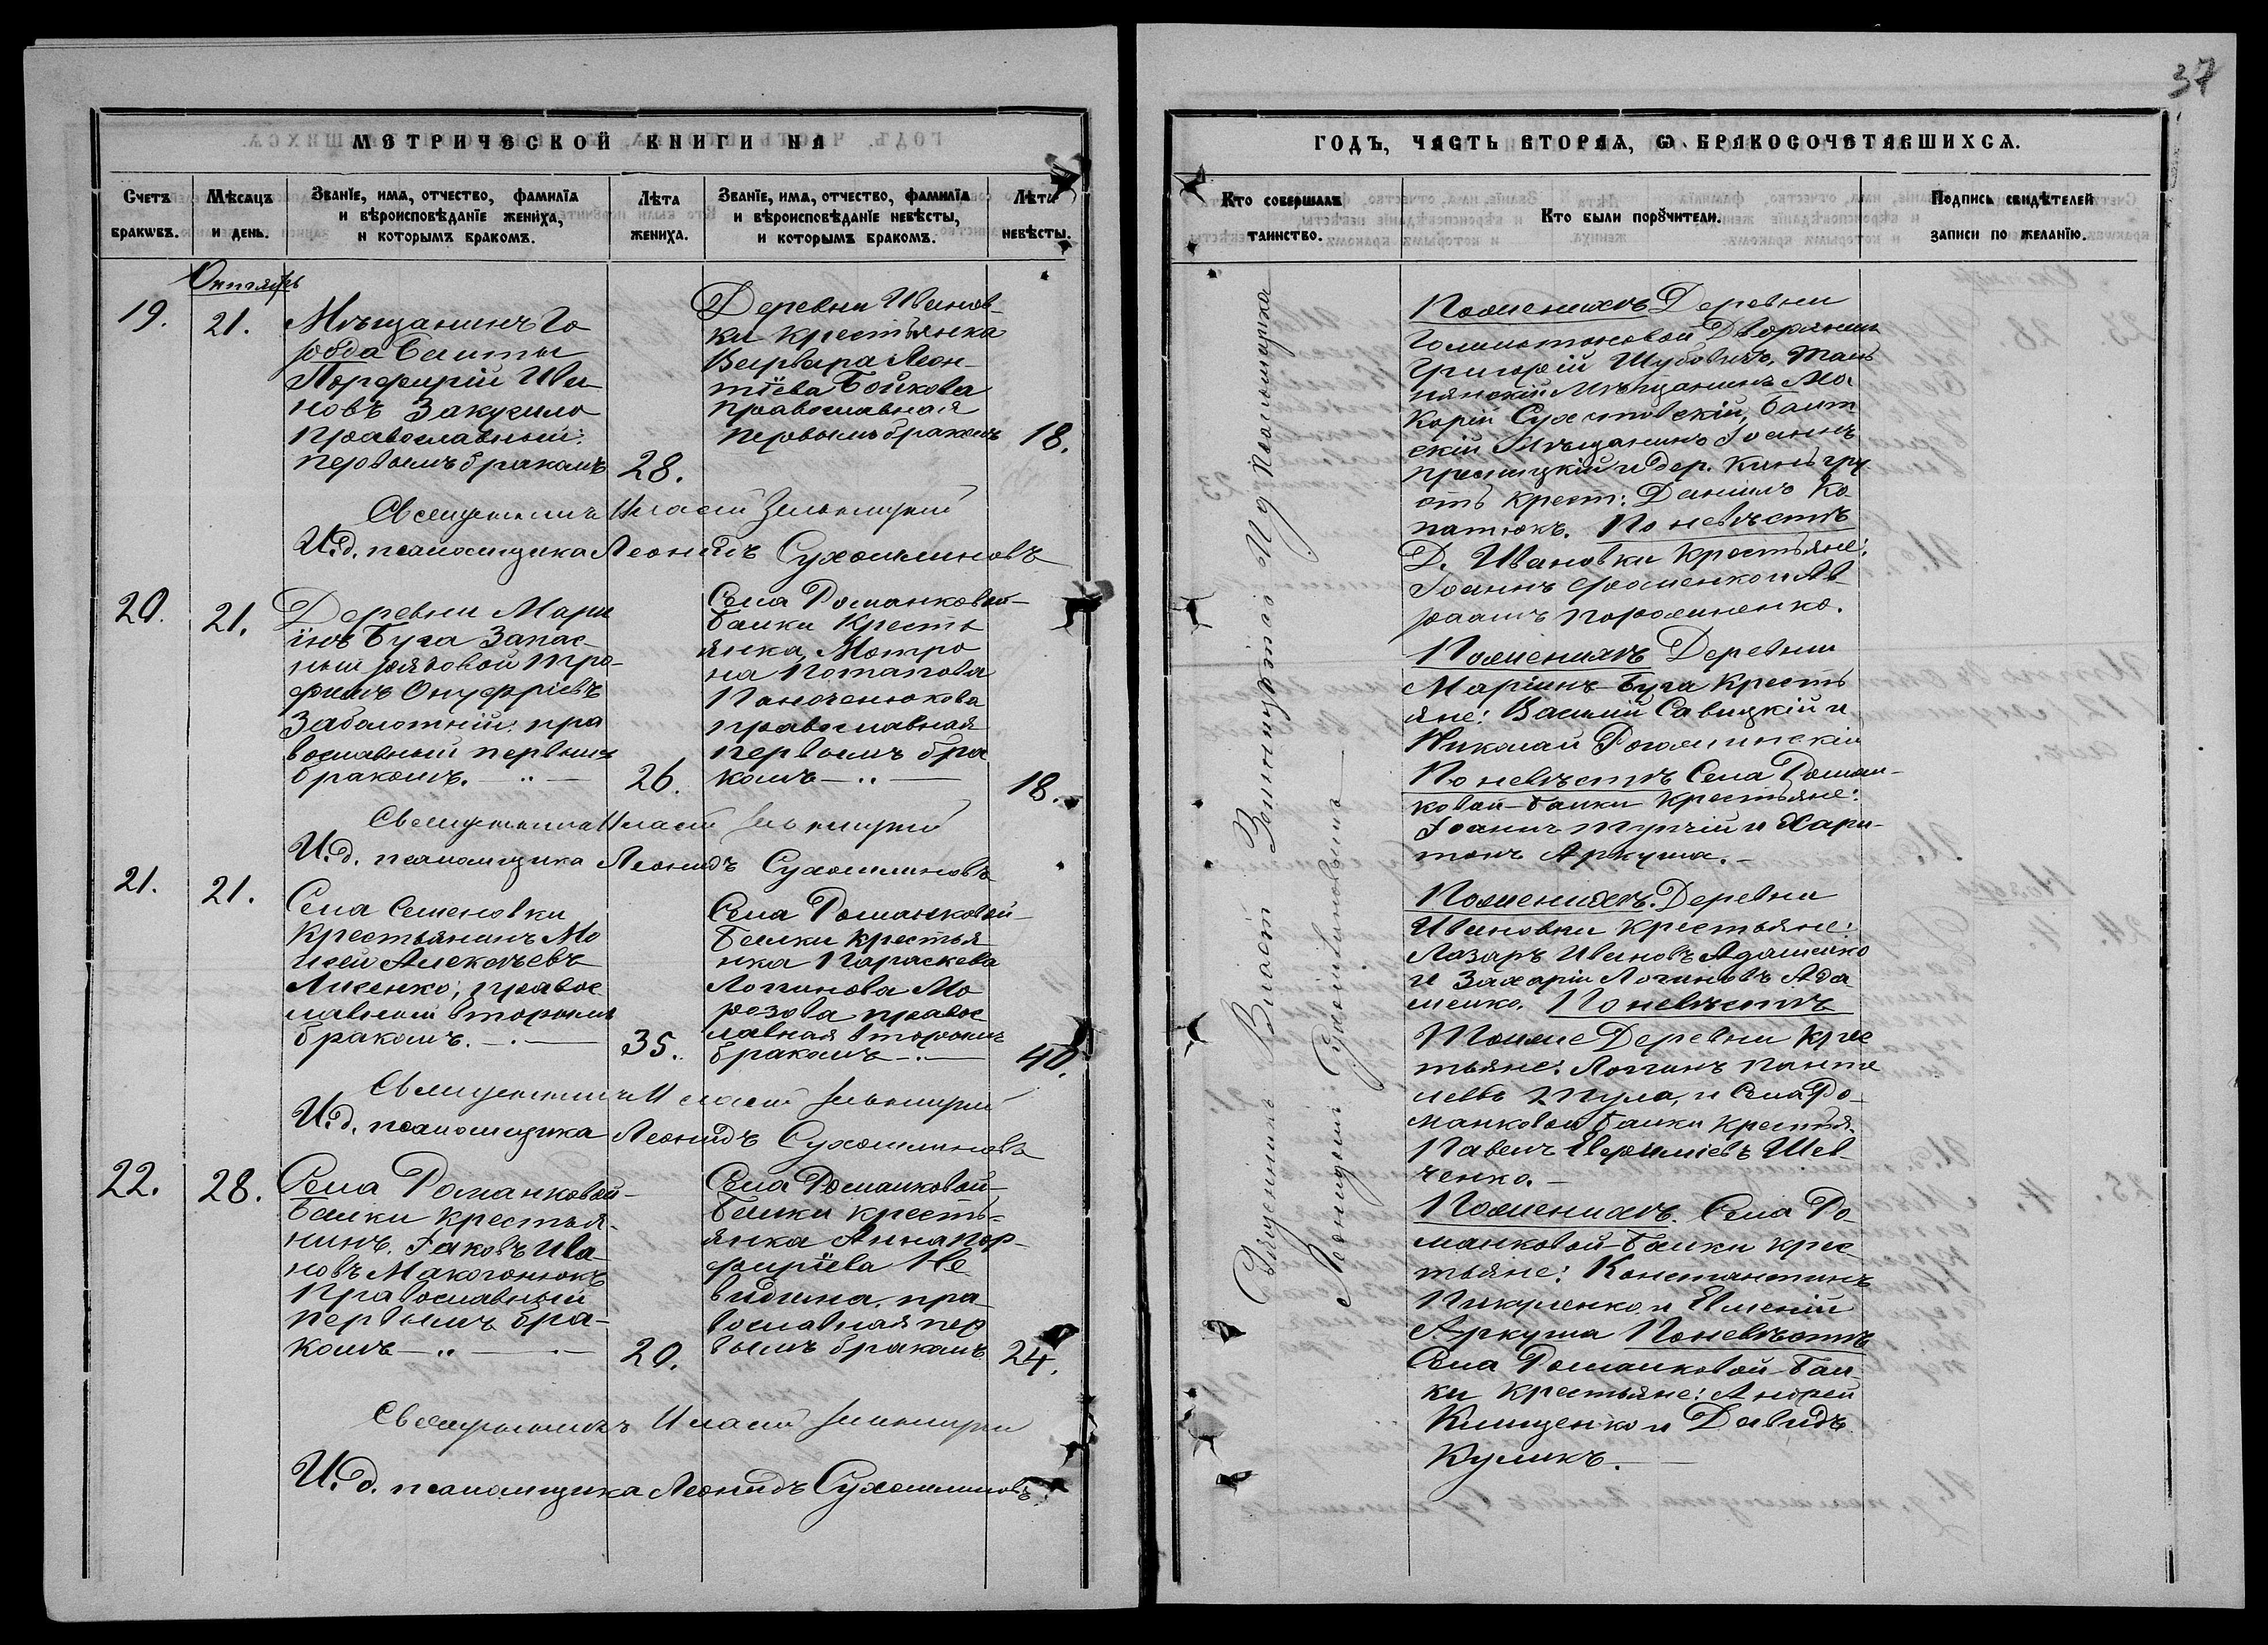 37
МЕТРИЧЕСКОЙ КНИГИ НА
Счетъ браковъ.
Мѣсяцъ и день.
Званїе, имя, отчество, фамилїа
и вѣроисповѣданїе жениха,
и которымъ бракомъ.
Лѣта
жениха.
Званїе, имя, отчество, фамилїа
и вѣроисповѣданїе невѣсты,
и которымъ бракомъ.
Лѣта
невѣсты.
Октябрь
19.
21.
Мѣщанинъ Го
рода Балты
Порфирій Ива
новъ Закусило
Православный:
первымъ бракомъ
28.
Деревни Иванов-
ки крестьянка
Варвара Леон-
тіева Бойкова
православная
первымъ бракомъ
18.
Священникъ Власій
И.д. псаломщика Леонидъ Сухомлиновъ
20.
21.
Деревни Мари
інъ Буга Запас-
ный рядовой Тро-
фимъ Онуфріевъ
Заболотній: пра
вославный первымъ
бракомъ.
26.
Села Романковой-
Балки Кресть
янка, Матро
на Потапова
православная
первымъ бра
комъ
18.
Священникъ Власій
И.д. псаломщика Леонидъ Сухомлиновъ
21.
21.
Села Семеновки
Крестьянинъ Мо
исей Алексѣевъ
Лисенко; правос
лавный вторымъ
бракомъ.
35.
Села Романковой-
Балки крестья
нка Параскева
Логинова Мо
розова правос
лавная вторымъ
бракомъ
40.
Священникъ Власій
И.д. псаломщика Леонидъ Сухомлиновъ
22.
28.
Села Романковой-
Балки крестья-
нинъ Іаковъ Ива
новъ Макогонюкъ
Православный
первымъ бра-
комъ
20.
Села Романковой-
Балки кресть-
янка Анна Пор-
фиріева Не
видима. пра-
вославная пер
вымъ бракомъ
24.
Священникъ Власій
И.д. псаломщика Леонидъ Сухомлиновъ
ГОДЪ, ЧАСТЬ ВТОРАЯ, Ѡ БРАКОСОЧЕТАВШИХСЯ.
Кто совершалъ
таинство.
Кто были порꙋчители.
Подпись свидѣтелей
записи по желанїю.
Священникъ Власій И.д. Псаломщика
Леонидъ Сухомлиновъ
По женихѣ Деревни
Дворянинъ
Григорій
Мѣщанинъ Ма
карій Балт
скій Мѣщанинъ Іоаннъ
и дер.
крест: Даніилъ Ко
патюкъ. По невѣстѣ
Д. Ивановки Крестьяне:
Іоаннъ Фоменко и Ав
раамъ
По женихѣ Деревни
Маріинъ-Буга Кресть
яне: Василій Савицкій и
Николай
По невѣстѣ Села Роман-
ковой-Балки Крестьяне:
Іоаннъ и Хари-
тонъ Аркуша.
По женихѣ. Деревни
Ивановки крестьяне:
Лазарь Ивановъ Адаменко
и Захарій Логиновъ Ада
менко. По невѣстѣ
Тойже Деревни Крес
тьяне: Логинъ Панте
и Села Ро-
манковой Балки крестья.
Павелъ Евфиміевъ Шев-
ченко.
По женихѣ. Села Ро-
манковой-Балки крес-
тьяне: Константинъ
и Евгеній
Аркуша По невѣстѣ
Села Романковой-Бал-
ки Крестьяне: Андрей
Клищенко и Давидъ
Куликъ.